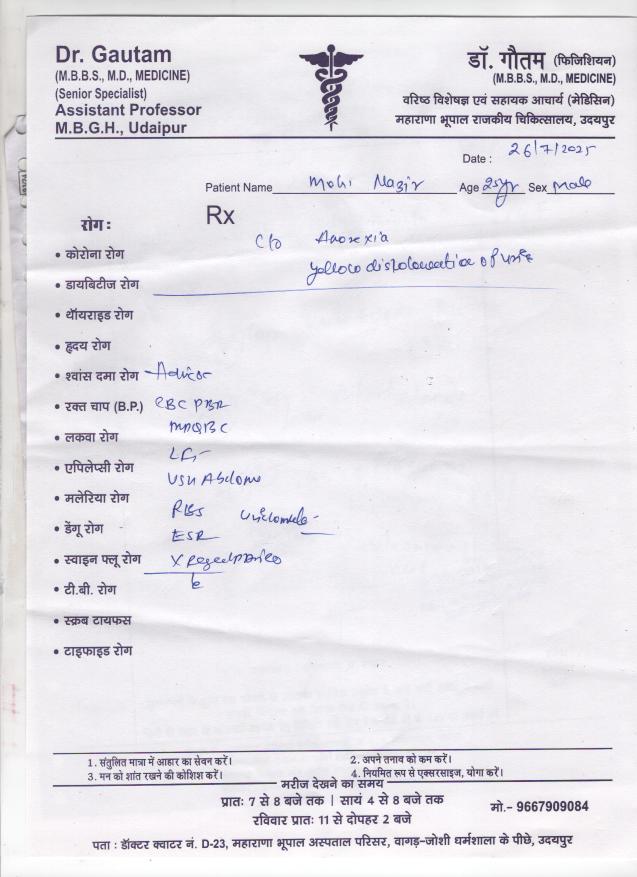 Dr. Gautam
(M.B.B.S., M.D., MEDICINE)
(Senior Specialist)
Assistant Professor
M.B.G.H., Udaipur
डॉ. गौतम (फिजिशियन)
(M.B.B.S., M.D., MEDICINE)
वरिष्ठ विशेषज्ञ एवं सहायक आचार्य (मेडिसिन)
महाराणा भूपाल राजकीय चिकित्सालय, उदयपुर
Date : 26/7/2025
Patient Name Mohi Nazir Age 25yr Sex Male
Rx
रोग :
C/o Anorexia
• कोरोना रोग
Yellow of
• डायबिटीज रोग
• थॉयराइड रोग
• हृदय रोग
• श्वांस दमा रोग Advice
• रक्त चाप (B.P.) CBC PBF
MPQBC
• लकवा रोग
LFT
• एपिलेप्सी रोग
USG Abdome
• मलेरिया रोग
RBS
• डेंगू रोग
ESR
• स्वाइन फ्लू रोग X
• टी.बी. रोग
• स्क्रब टायफस
• टाइफाइड रोग
1. संतुलित मात्रा में आहार का सेवन करें।
2. अपने तनाव को कम करें।
3. मन को शांत रखने की कोशिश करें।
4. नियमित रूप से एक्सरसाइज, योगा करें।
मरीज देखने का समय
प्रातः 7 से 8 बजे तक | सायं 4 से 8 बजे तक
रविवार प्रातः 11 से दोपहर 2 बजे
मो.- 9667909084
पता : डॉक्टर क्वाटर नं. D-23, महाराणा भूपाल अस्पताल परिसर, वागड़-जोशी धर्मशाला के पीछे, उदयपुर